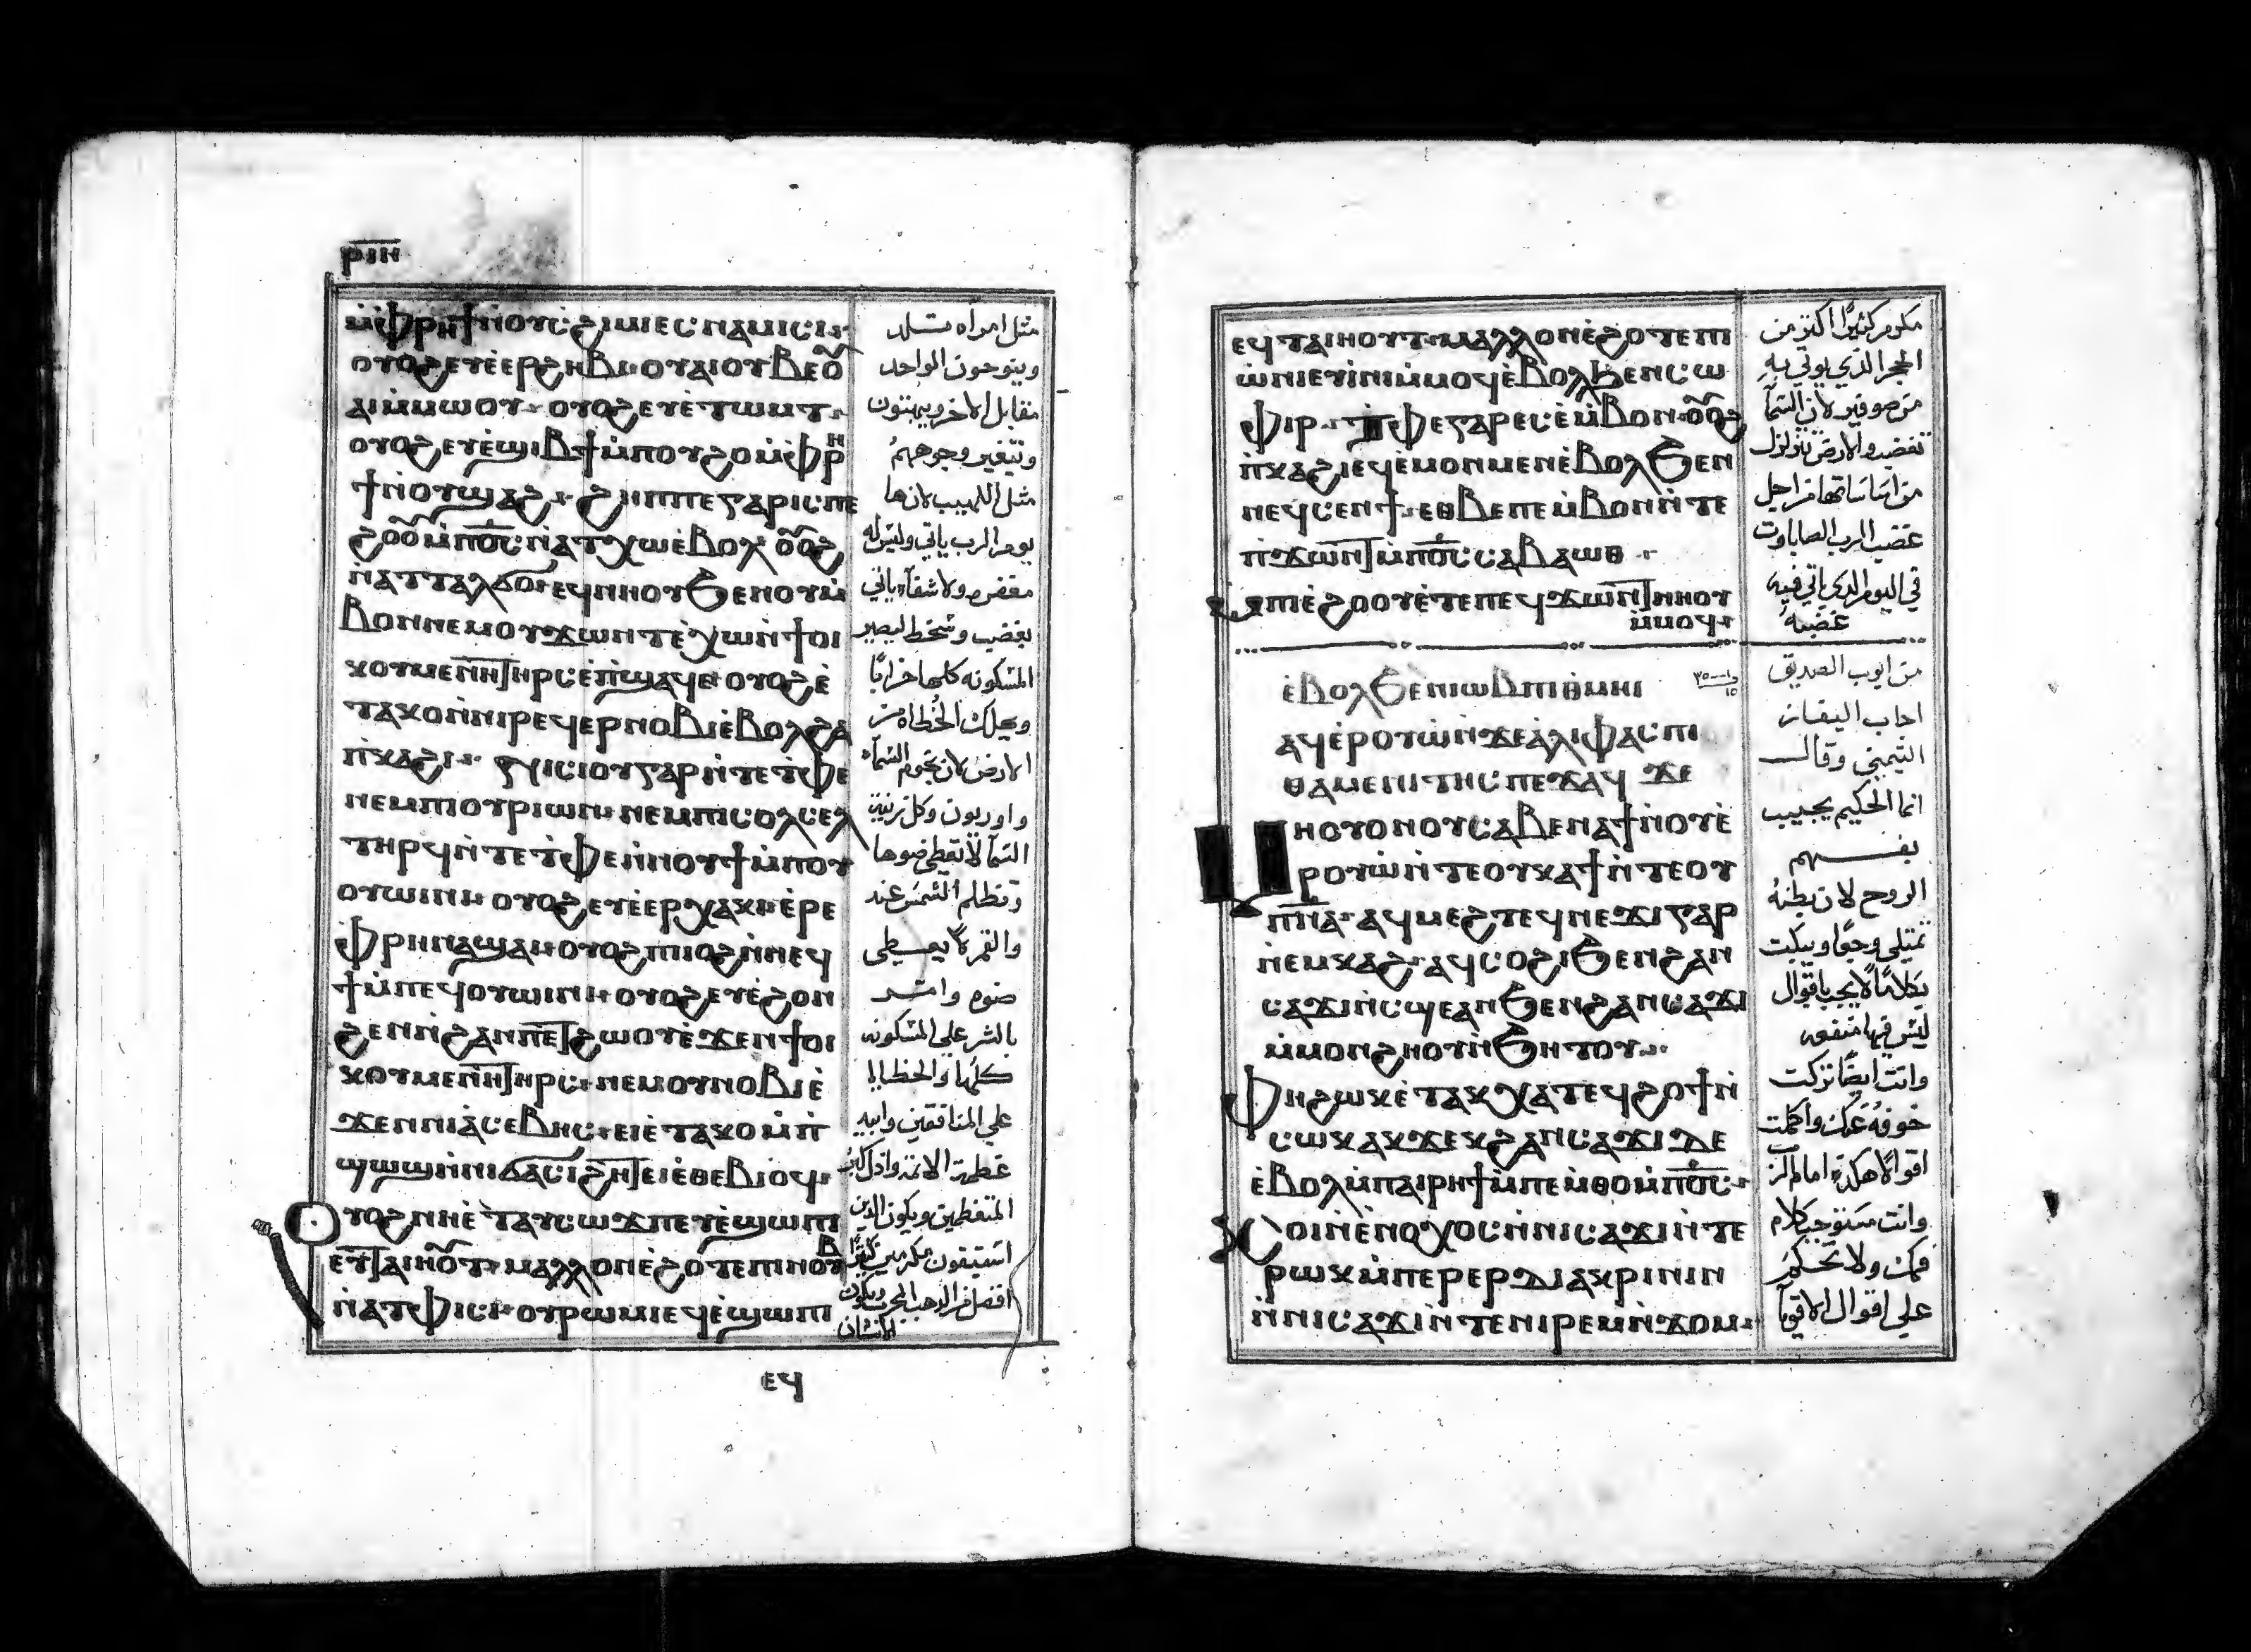 ⲣⲓⲏ
ⲙ̀ⲫⲣⲏϯⲛ̀ⲟⲩⲥϩⲓⲙⲓⲉⲥⲛⲁⲙⲓⲥⲓ
ⲟⲩⲟϩⲉⲩⲉ̀ⲉⲣϩⲏⲃⲓⲟⲩⲁⲓⲟⲩⲃⲉⲟ
ⲁⲓⲙ̀ⲙⲱⲟⲩ ⲟⲩⲟϩⲉⲩⲉ̀ⲧⲱⲙⲧ
ⲟⲩⲟϩⲉⲩⲉ̀ϣⲓⲃϯⲙ̀ⲡⲟⲩϩⲟⲙ̀ⲫⲣⲏ
ϯⲛ̀ⲟⲩϣⲁϩ ϩⲏⲡⲡⲉⲅⲁⲣⲓⲥⲡⲉ
ϩⲟⲟⲩⲙ̀ⲡⲟ̅ⲥ̅ⲛ̀ⲁⲧⲭⲱⲉ̀ⲃⲟⲗ ⲟⲩⲟϩ
ⲛ̀ⲁⲧⲧⲁⲗϭⲟⲉϥⲛⲏⲟⲩϧⲉⲛⲟⲩⲙ̀
ⲃⲟⲛⲛⲉⲙⲟⲩϫⲱⲛⲧⲉ̀ⲭⲱⲛ̀ϯⲟⲓ
ⲕⲟⲩⲙⲉⲛⲏⲧⲏⲣⲥⲉ̀ⲡ̀ϣⲁϥⲉ ⲟⲩⲟϩⲉ̀
ⲧⲁⲕⲟⲛ̀ⲛⲓⲣⲉϥⲉⲣⲛⲟⲃⲓⲉ̀ⲃⲟⲗϩⲁ
ⲡ̀ⲕⲁϩⲓ ⲛⲓⲥⲓⲟⲩⲅⲁⲣⲛ̀ⲧⲉⲧ̀ⲫⲉ
ⲛⲉⲙⲡⲓⲟⲩⲣⲓⲱⲛ ⲛⲉⲙⲡⲓⲥⲟⲗⲥⲉⲗ
ⲧⲏⲣϥⲛ̀ⲧⲉⲧ̀ⲫⲉⲛ̀ⲛⲟⲩϯⲙ̀ⲡⲟⲩ
ⲟⲩⲱⲓⲛⲓ ⲟⲩⲟϩⲉⲩⲉ̀ⲉⲣⲭⲁⲕⲓⲉ̀ⲣⲉ
ⲫⲣⲏⲛⲁϣⲁⲓⲟⲩⲟϩⲡⲓⲟϩⲛ̀ⲛⲉϥ
ϯⲙ̀ⲡⲉϥⲟⲩⲱⲓⲛⲓ ⲟⲩⲟϩⲉⲩⲉ̀ϩⲟⲛ
ϩⲉⲛⲛ̀ϩⲁⲛⲡⲉⲧϩⲱⲟⲩⲉ̀ϫⲉⲛϯⲟⲓ
ⲕⲟⲩⲙⲉⲛⲏⲧⲏⲣⲥ ⲛⲉⲙⲟⲩⲛⲟⲃⲓⲉ̀
ϫⲉⲛⲛⲓⲁ̀ⲥⲉⲃⲏⲥ ⲉⲓⲉ̀ⲧⲁⲕⲟⲙ̀ⲡ̀
ϣϣϣⲛ̀ⲛⲓϭⲁⲥⲓϩⲏⲧⲉⲓⲉ̀ⲑⲉⲃⲓⲟϥ
ⲟⲩⲟϩⲛⲏⲉ̀ⲧⲁⲩⲥⲱϫⲡⲉⲩⲉ̀ϣⲱⲡⲓ
ⲉⲩⲧⲁⲓⲏⲟⲩⲧ ⲙⲁⲗⲗⲟⲛⲉ̀ϩⲟⲧⲉⲡⲓⲛⲟⲩⲃ
ⲛ̀ⲁⲧⲫⲓⲥⲓ ⲟⲩⲣⲱⲙⲓⲉϥⲉ̀ϣⲱⲡⲓ
ⲉϥ
مثل امراه تلد
وينوحون الواحد
مقابل الاخر ويبهتون
وتتغير وجوههم
مثل اللهيب لانها
يوم الرب ياتي وليس له
مغفره ولا شفآء ياتي
بغضب وسخط ليصير
المسكونه كلها خرابًا
ويهلك الخطاه من
الارض لان نجوم السمآء
واوريون وكل زينة
السمآ لا تعطي ضوها
وتظلم الشمس عند
والقمر لا يعطي
ضوه وامتـد
بالشر علي المسكونه
كلها والخطايا
علي المنافقين وابيد
عظمة الاثمه واذل كبر
المتعظمين ويكون الذين
استبقون مكرمين كثيرًا
افضل من الذهب المجرب ويكون
الانسان
ⲉϥⲧⲁⲓⲏⲟⲩⲧ ⲙⲁⲗⲗⲟⲛⲉ̀ϩⲟⲧⲉⲡⲓ
ⲱ̀ⲛⲓⲉⲧⲓ̀ⲛⲓⲙ̀ⲙⲟϥⲉ̀ⲃⲟⲗϧⲉⲛⲥⲱ
ⲫⲓⲣ ⲧ̀ⲫⲉⲅⲁⲣⲉⲥⲉ̀ⲙ̀ⲃⲟⲛ ⲟⲩⲟϩ
ⲡ̀ⲕⲁϩⲓⲉϥⲉ̀ⲙⲟⲛⲙⲉⲛⲉ̀ⲃⲟⲗϧⲉⲛ
ⲛⲉϥⲥⲉⲛϯ ⲉⲑⲃⲉⲡⲉⲙ̀ⲃⲟⲛⲛ̀ⲧⲉ
ⲡ̀ϫⲱⲛⲧⲙ̀ⲡⲟ̅ⲥ̅ⲥⲁⲃⲁⲱⲑ
ϧⲉⲛⲡⲓⲉ̀ϩⲟⲟⲩⲉ̀ⲧⲉⲡⲉϥϫⲱⲛⲧⲛⲏⲟⲩ
ⲙ̀ⲙⲟϥ
ⲉ̀ⲃⲟⲗϧⲉⲛⲓⲱⲃⲡⲓⲑ̀ⲙⲏⲓ
ⲁϥⲉ̀ⲣⲟⲩⲱ̀ⲛ̀ϫⲉⲁ̀ⲗⲓⲫⲁⲥⲡⲓ
ⲑⲁⲙⲉⲛⲓⲧⲏⲥⲡⲉϫⲁϥ ϫⲉ
ⲙⲏⲟⲩⲟⲛⲟⲩⲥⲁⲃⲉⲛⲁϯⲛ̀ⲟⲩⲉ̀
ⲣⲟⲩⲱ̀ⲛ̀ⲧⲉⲟⲩⲕⲁϯⲛ̀ⲧⲉⲟⲩ
ⲡ̅ⲛ̅ⲁ̅ ⲁϥⲙⲉϩⲧⲉϥⲛⲉϫⲓⲅⲁⲣ
ⲛ̀ⲉⲙⲕⲁϩ ⲁϥⲥⲟϩⲓϧⲉⲛϩⲁⲛ
ⲥⲁϫⲓⲛ̀ⲥϣⲉⲁⲛϧⲉⲛϩⲁⲛⲥⲁϫⲓ
ⲙ̀ⲙⲟⲛϩⲏⲟⲩⲛ̀ϧⲏⲧⲟⲩ
ⲫⲏϩⲱⲕⲉ̀ⲧⲁⲕⲭⲁⲧⲉϥϩⲟϯⲛ̀
ⲥⲱⲕⲁⲕϫⲉⲕϩⲁⲛⲥⲁϫⲓⲇⲉ
ⲉ̀ⲃⲟⲗⲙ̀ⲡⲁⲓⲣⲏϯⲙ̀ⲡⲉⲙ̀ⲑⲟⲙ̀ⲡⲟ̅ⲥ̅
ⲕⲟⲓⲛ̀ⲉ̀ⲛⲟⲭⲟⲥⲛ̀ⲛⲓⲥⲁϫⲓⲛ̀ⲧⲉ
ⲣⲱⲕⲙ̀ⲡⲉⲣⲉⲣⲇⲓⲁⲕⲣⲓⲛⲓⲛ
ⲛ̀ⲛⲓⲥⲁϫⲓⲛ̀ⲧⲉⲛⲓⲣⲉⲙⲛ̀ϫⲟⲙ
مكرم كثيرًا اكثر من
الحجر الذي يوتي به
من صوفير لان السمآ
تغضب والارض تتزلزل
من اساساتها من اجل
غضب الرب الصاباوت
في اليوم الذي ياتي فيه
غضبهُ
من ايوب الصديق
اجاب اليفاز
التيمني وقال
انما الحكيم يجيب
بفهم
الروح لان بطنهُ
تمتلي وجعًا ويبكت
بكلامًا لا يجب باقوال
ليس فيها منفعه
وانت ايضًا تركت
خوفهُ عنك واكملت
اقوالًا هكذي امام الرب
وانت مستوجب كلام
فمك ولا تحكم
علي اقوال الاقويآ